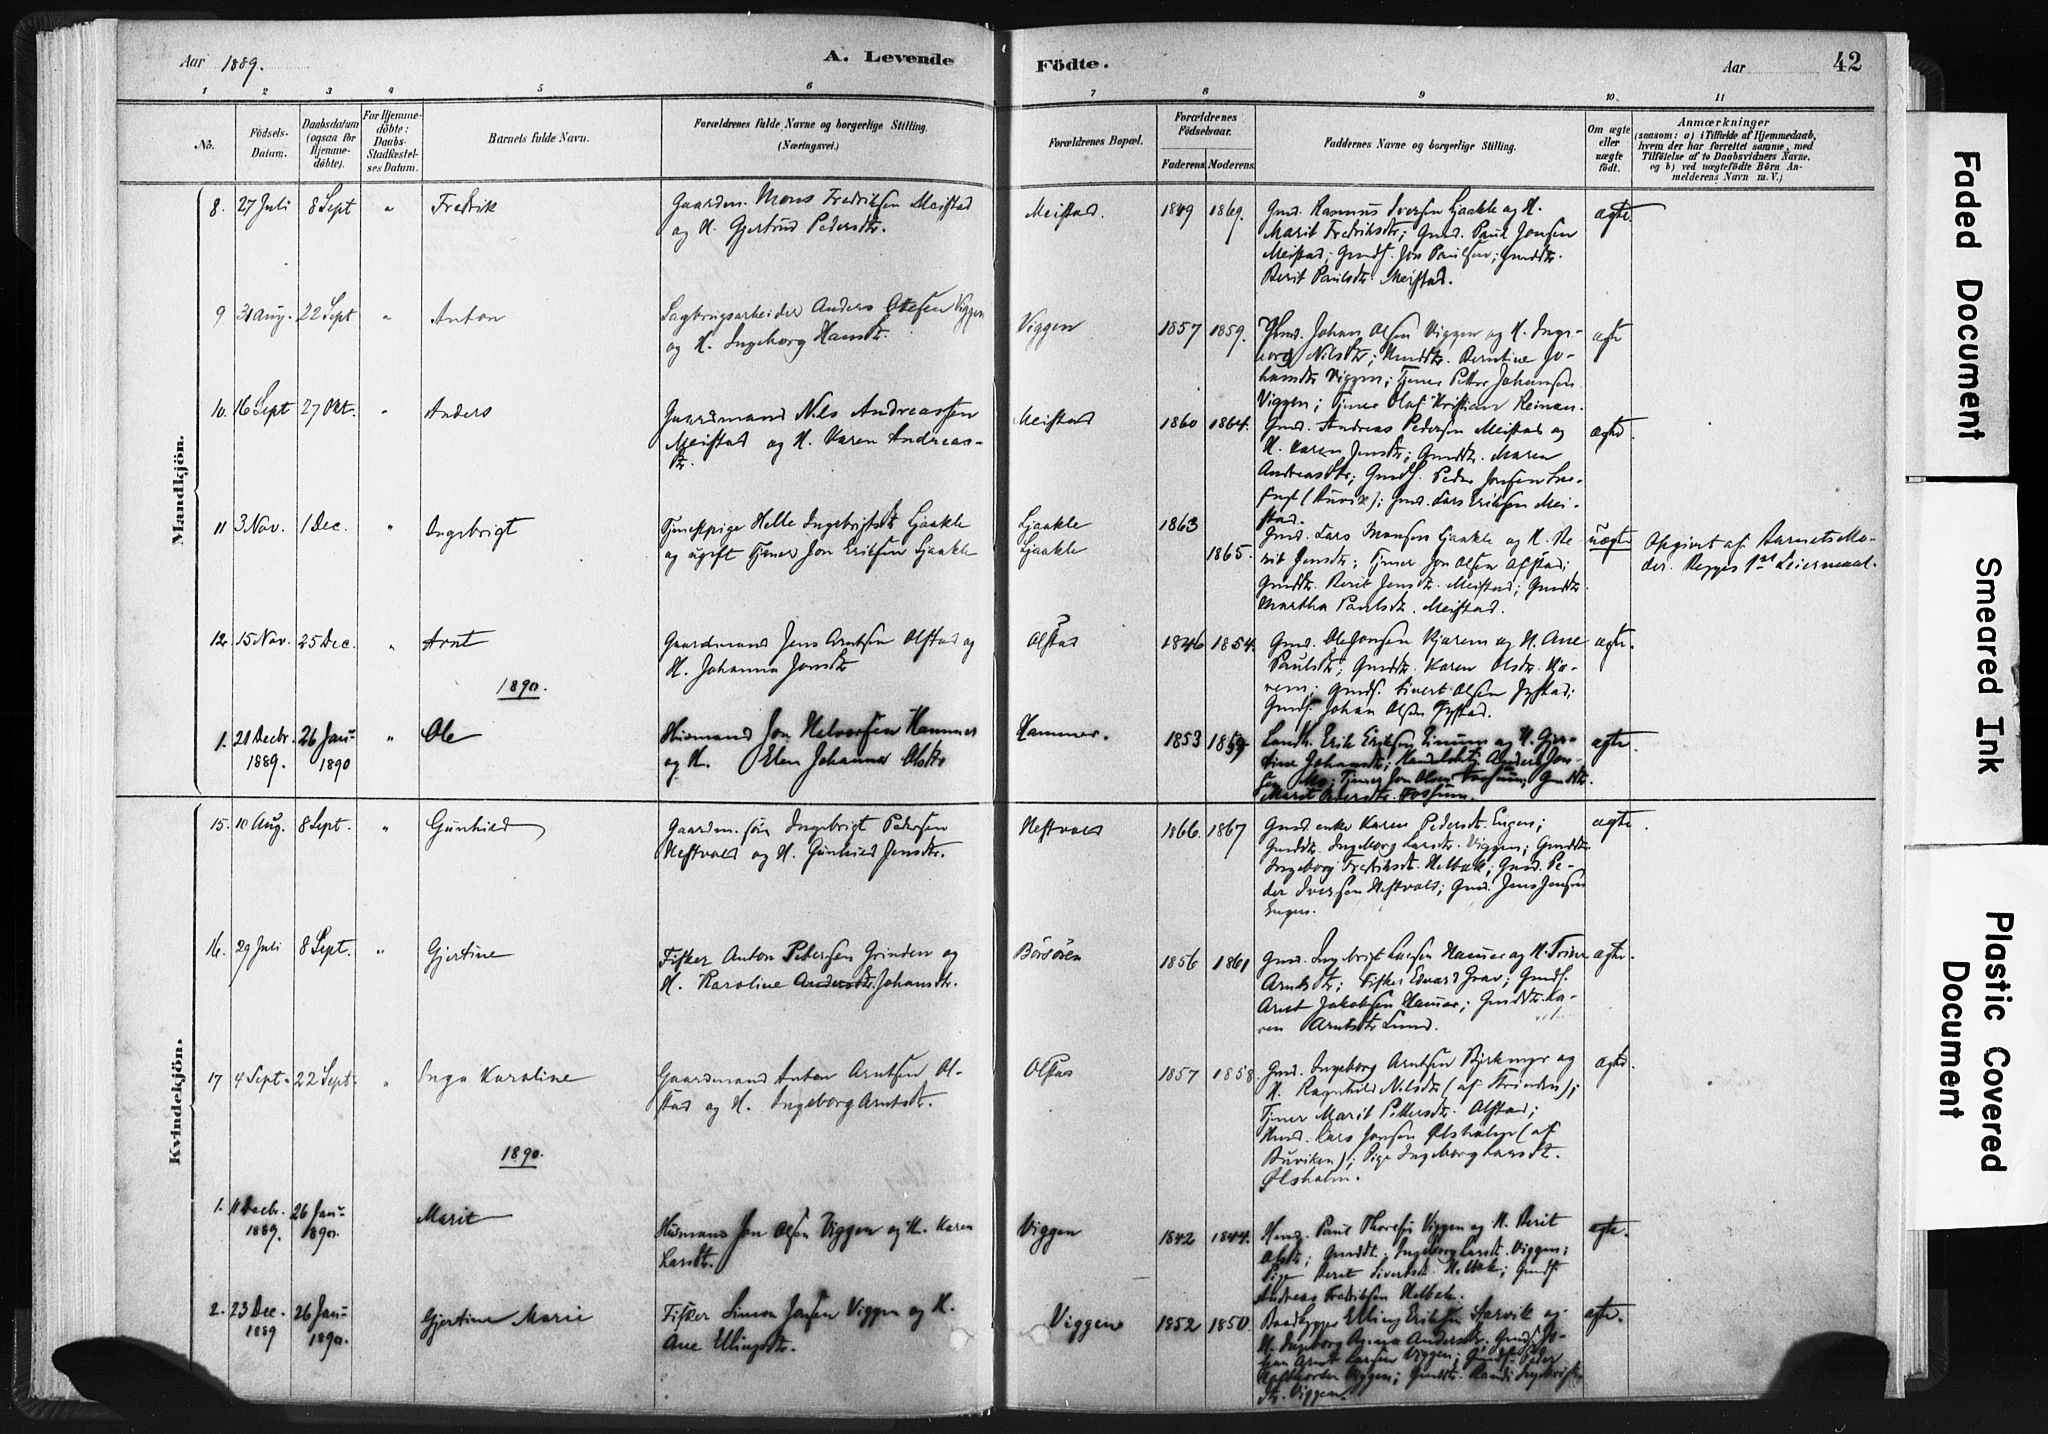 Aar 1889. A. Levende Födte. Aar 42
1 2 3 4 5 6 7 8 9 10. 11
No.
Födsels-Datum.
Daabsdatum (ogsaa for Hjemme-döbte).
For Hjemme-döbte: Daabs-Stadfæstelses Datum.
Barnets fulde Navn.
Forældrenes fulde Navne og borgerlige Stilling.
(Næringsvei.)
Forældrenes Bopæl.
Forældrenes Födselsaar.
Faderens. Moderens.
Faddernes Navne og borgerlige Stilling.
Om ægte eller uægte födt.
Anmærkninger
(saasom: a) i Tilfælde af Hjemmedaab,
hvem der har forrettet samme, med
Tilföielse af to Daabsvidners Navne.
og b) ved uægtefödte Börn An-
melderens Navn m. V.)
Mandkjön.
8. 27 Juli 8 Sept " Fredrik
Gaardm. Mons Fredriksen Meistad
og H. Gjertrud Pedersdtr.
Meistad. 1849 1869.
Gmd. Rasmus Iversen Gaakle og H.
Marit Fredriksdtr; Gmd. Paul Jonsen
Meistad; Gmdss. Jon Paulsen; Gmddtr.
Berit Paulsdtr. Meistad.
ægte
9 31 Aug. 22 Sept " Anton
Sagbrugsarbeider Anders Olesen Viggen
og H. Ingeborg Hansdtr.
Viggen 1857 1859.
Hsmd. Johan Olsen Viggen og H. Inge-
borg Nilsdtr; Hmddtr. Berntine Jo-
hansdtr Viggen; Tjener Petter Johansen
Viggen; Tjener Olaf Kristian Reinan.
ægte
10. 16 Sept 27 Okt. " Anders
Gaardmand Nils Andreassen
Meistad og H. Karen Andreas-
dtr.
Meistad 1860 1864.
Gmd. Andreas Pedersen Meistad og
H. Karen Jensdtr; Gmddtr. Maren
Andreasdtr; Gmds. Peder Jonsen
(Buvik); Gmd. Lars Eriksen Mei-
stad.
ægte.
11 3 Nov. 1 Dec. " Ingebrigt
Tjenestpige Helle Ingebrigtsdtr Gaakle
og ugift Tjener Jon Eriksen Gaakle
Gaakle
Gaakle
1863
1865.
Gmd. Lars Monsen Gaakle og H. Be-
rit Jensdtr; Tjener Jon Olsen Olstad;
Gmddtr. Berit Jensdtr. Meistad; Gmddtr.
Martha Paulsdtr. Meistad.
uægte
Opgivet af Barnets Mo-
der. Begges 1ste Leiermaal.
12. 15 Nov. 25 Dec. " Arnt
Gaardmand Jens Arntsen Olstad og
H. Johanna Jonsdtr
Olstad 1846 1854.
Gmd. Ole Jonsen Kjærem og H. Ane
Paulsdtr; Gmddtr. Karen Olsdtr. Kjæ-
rem; Gmds. Sivert Olsen
Gmds. Johan Olsen
ægte.
1890.
1. 21 Decbr. 1889. 26 Jan. 1890 " Ole
Husmand Jon Halvorsen Hammer
og H. Elen Johanna Olsdtr
Hammer. 1853 1859
Landh. Erik Eriksen og H. Gjer-
tine Johansdtr; Anders Jon-
sen Mo; Tjener Jon Olsen Fossum; Gmddtr.
Marit Fossum.
ægte
Kvindekjön.
15. 10 Aug. 8 Sept. " Gunhild
Gaardm. søn Ingebrigt Pedersen
Heftvold og H. Gunhild Jensdtr.
Heftvold 1866. 1867
Gmd. enke Karen Pedersdtr. Engen;
Gmddtr. Ingeborg Larsdtr. Viggen; Gmddtr.
Ingeborg Fredriksdtr. Helbæk; Gmd. Pe-
der Iversen Heftvold; Gmd. Jens Jensen
Engen.
ægte.
16. 29 Juli 8 Sept. " Gjertine
Fisker Anton Petersen Grinden og
H. Karoline Andersdtr. Johansdtr.
Börsören 1856 1861
Gmd. Ingebrigt Larsen Hammer og H. Trine
Arntsdtr; Fisker Edvard Grav; Gmds.
Arnt Jakobsen Hammer; Gmddtr. Ka-
ren Arntsdtr Lund.
ægte.
17 4 Sept. 22 Sept. " Inga Karoline
Gaardmand Anton Arntsen Ol-
stad og H. Ingeborg Arntsdtr.
Olstad 1857 1858.
Gmd. Ingeborg Arntsen Bjerkmyr og
H. Ragnhild Nilsdtr (af Strinden);
Tjener Marit Pettersdtr. Olstad;
Hmd. Lars Jonsen Ølsholm (af
Buviken); Pige Ingeborg Larsdtr.
Ølsholm.
ægte.
1890.
1. 11 Decbr. 1889. 26 Jan. 1890. Marit
Husmand Jon Olsen Viggen og H. Karen
Larsdtr.
Viggen 1842 1844.
Hmd. Paul Thoresen Viggen og H. Berit
Olsdtr; Gmddtr. Ingeborg Larsdtr. Viggen;
Pige Beret Sivertsdtr. Helbæk; Gmds.
Andreas Fredriksen Helbæk.
ægte.
2. 23 Dec. 1889 26 Jan. 1890. Gjertine Marie
Fisker Simon Jansen Viggen og H.
Ane Ellingsdtr.
Viggen 1852 1850.
Baadbygger Elling Eriksen Starvik og
H. Ingeborg Anna Andersdtr. Gmds. Jo-
han Arnt Larsen Viggen; Gmds. Peder
Viggen; Gmddtr. Randi Ingebrigts-
dtr. Viggen.
ægte.
Faded Document
Smeared Ink
Plastic Covered Document